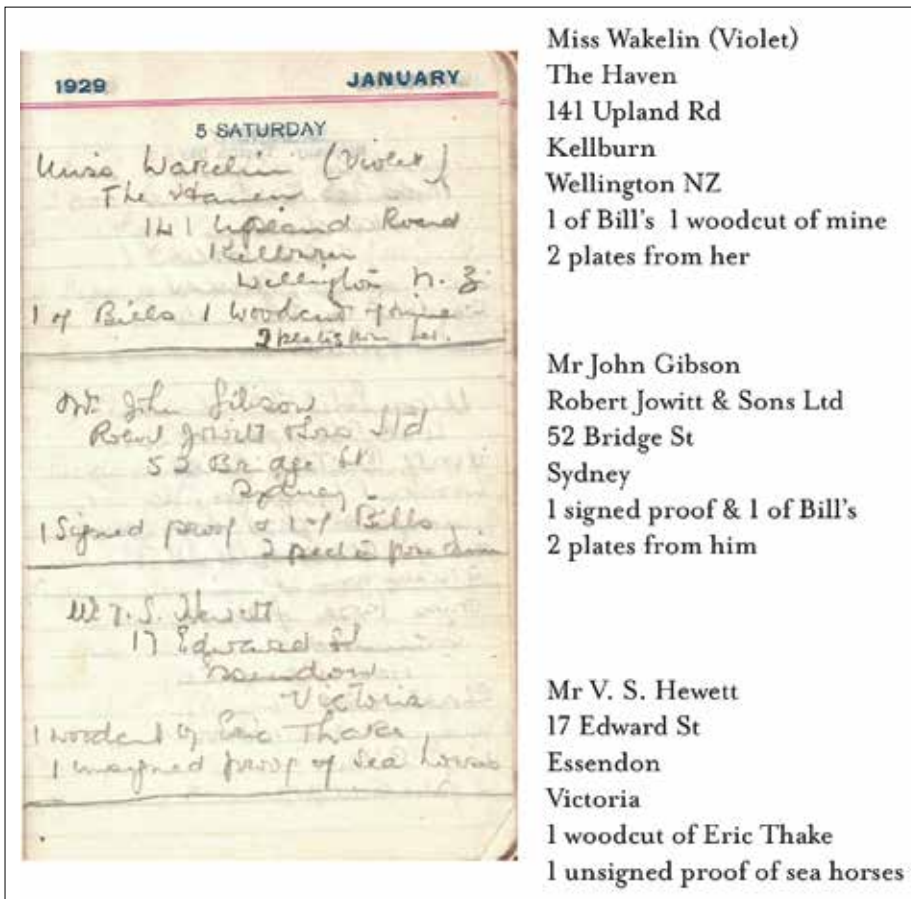 1929 JANUARY
5 SATURDAY
Miss Wakelin (Violet)
The Haven
141 Upland Road
Kelburn
Wellington N.Z.
1 of Bills 1 Woodcut of mine
2 plates from her.
Mr John Gibson
Robert Jowitt & Sons Ltd
52 Bridge St
Sydney
1 Signed proof & 1 of Bills
2 plates from him
Mr V. S. Hewett
17 Edward St
Essendon
Victoria
1 woodcut of Eric Thake
1 unsigned proof of sea horses
Miss Wakelin (Violet)
The Haven
141 Upland Rd
Kellburn
Wellington NZ
1 of Bill's 1 woodcut of mine
2 plates from her
Mr John Gibson
Robert Jowitt & Sons Ltd
52 Bridge St
Sydney
1 signed proof & 1 of Bill's
2 plates from him
Mr V. S. Hewett
17 Edward St
Essendon
Victoria
1 woodcut of Eric Thake
1 unsigned proof of sea horses